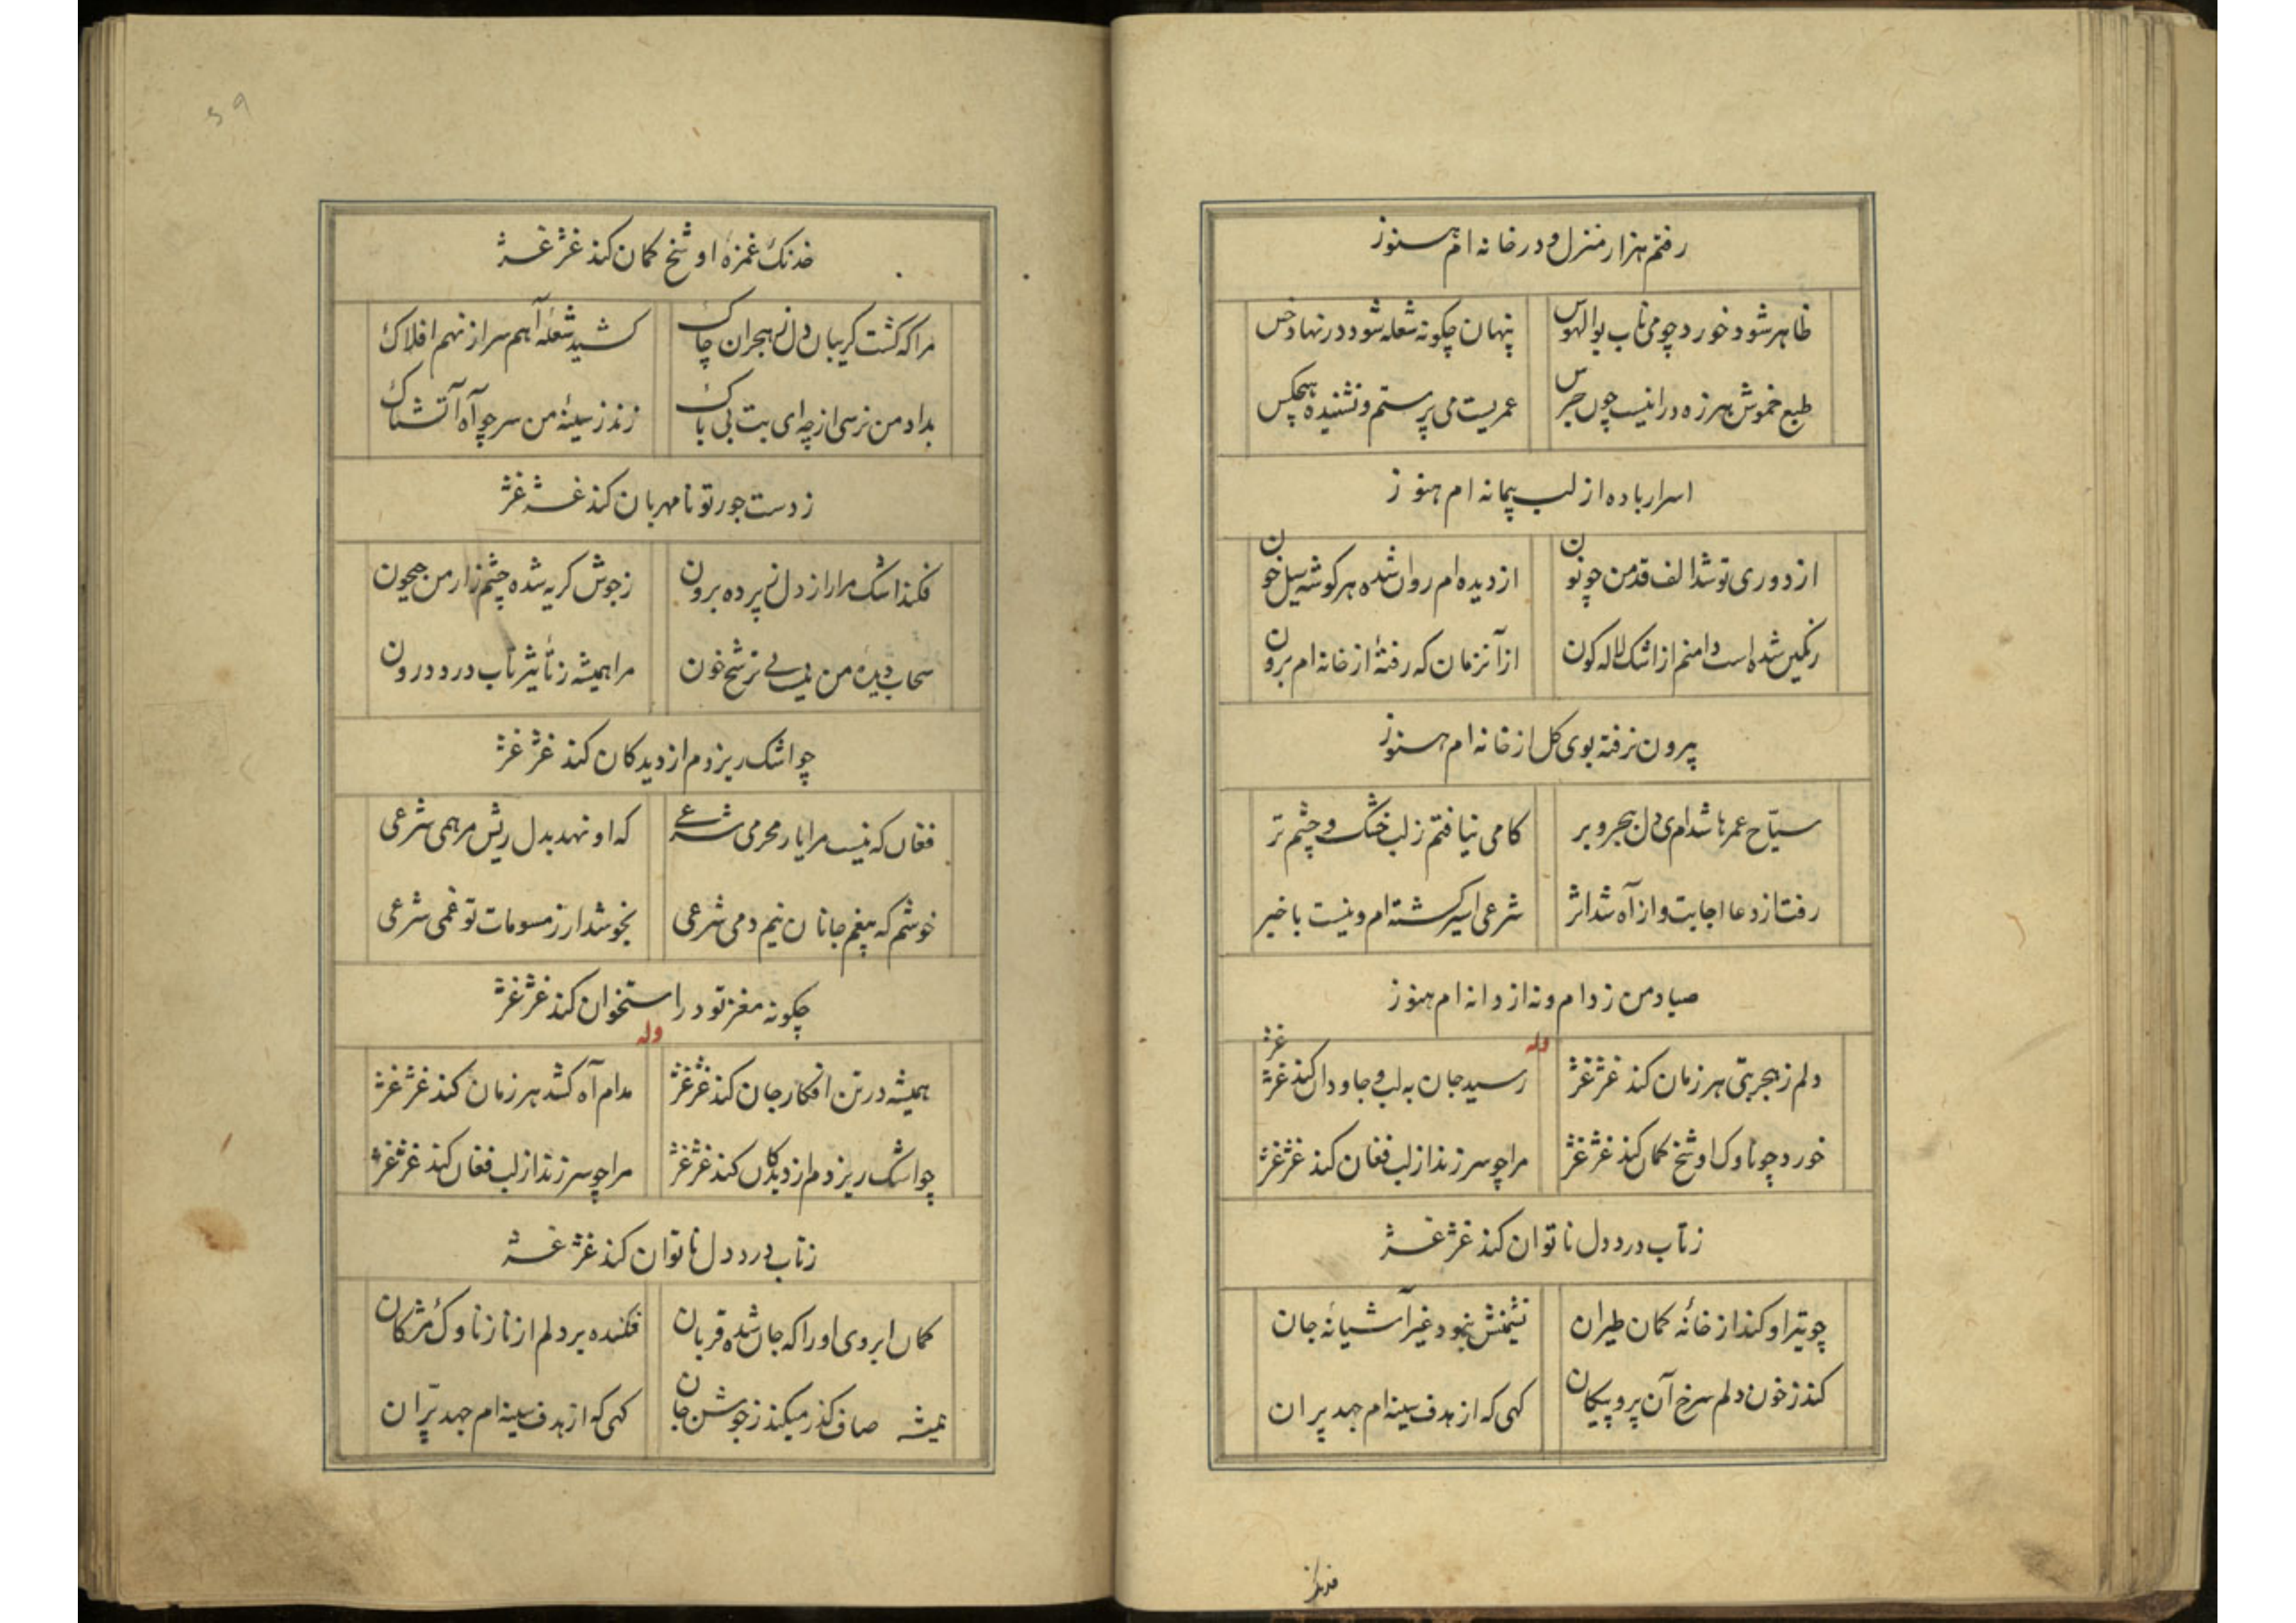 رفتم هزار منزل و در خانه ام هنوز
ظاهر شود خورد چو می ناب بوالهوس پنهان چکونه شعله شود در نهاد خس
طبع خموش هرزه درا نیست چون جرس عمریست می پرستم و نشنیده هیچکس
اسرار باده از لب پیمانه ام هنوز
از دوری تو شد الف قد من چو نون از دیده ام روان شده هر کوشه سیل خون
رنکین شده است دامنم از اشک لاله کون از آنزمان که رفتهٔ از خانه ام برون
بیرون نرفته بوی کل از خانه ام هنوز
سیّاح عمرها شدم ای دل ببحر و بر کامی نیافتم ز لب خشک و چشم تر
رفت از دعا اجابت و از آه شد اثر شرعی اسیر کشته ام و نیست با خبر
صیاد من ز دام و نه از دانه ام هنوز
وله
دلم ز هجر بتی هر زمان کند غژغژ رسید جان به لب و جاودان کند غژغژ
خورد چو ناوک او شخ کمان کند غژغژ مرا چو سر زند از لب فغان کند غژغژ
ز تاب درد دل ناتوان کند غژغژ
چو تیر او کند از خانهٔ کمان طیران نشیمنش نبود غیر آشیانهٔ جان
کند ز خون دلم سرخ آن پر و پیکان کهی که از هدف سینه ام جهد پران
غژغژ
خدنک
۵۹
خدنک غمزهٔ او شخ کمان کند غژغژ
مرا که کشت کریبان دل ز هجران چاک کشید شعلهٔ آهم سر از نهم افلاک
بداد من نرسی از چه ای بت بی باک زند ز سینهٔ من سر چو آه آتشناک
ز دست جور تو نامهربان کند غژغژ
فکند اشک مرا راز دل ز پرده برون ز جوش کریه شده چشم زار من جیحون
سحاب دیدهٔ من نیست بی ترشح خون مرا همیشه ز تأثیر تاب درد درون
چو اشک ریزدم از دیدکان کند غژغژ
فغان که نیست مرا یار محرمی شرعی که او نهد بدل ریش مرهمی شرعی
خوشم که بیغم جانان نیم دمی شرعی
چکونه مغز تو در استخوان کند غژغژ
وله
همیشه در تن افکار جان کند غژغژ مدام آه کشد هر زمان کند غژغژ
چو اشک ریزدم از دیدکان کند غژغژ مرا چو سر زند از لب فغان کند غژغژ
ز تاب درد دل ناتوان کند غژغژ
کمان ابروی او را که جان شده قربان فکنده بر دلم از ناز ناوک مژکان
همیشه صاف کذر میکند ز جوشن جان کهی که از هدف سینه ام جهد پرّان